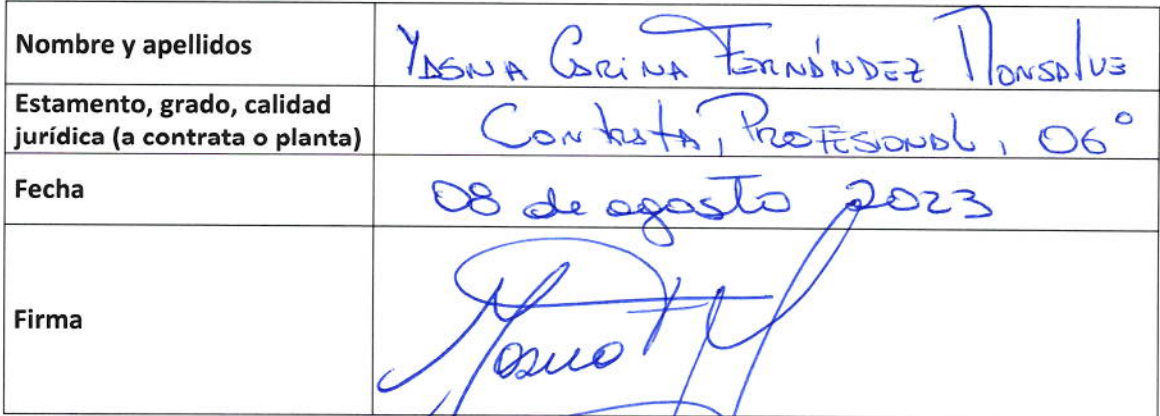 Nombre y apellidos
Yasna Carina Fernández Monsalve
Estamento, grado, calidad
jurídica (a contrata o planta)
Contrata, Profesional, 06°
Fecha
08 de agosto 2023
Firma
Yasna